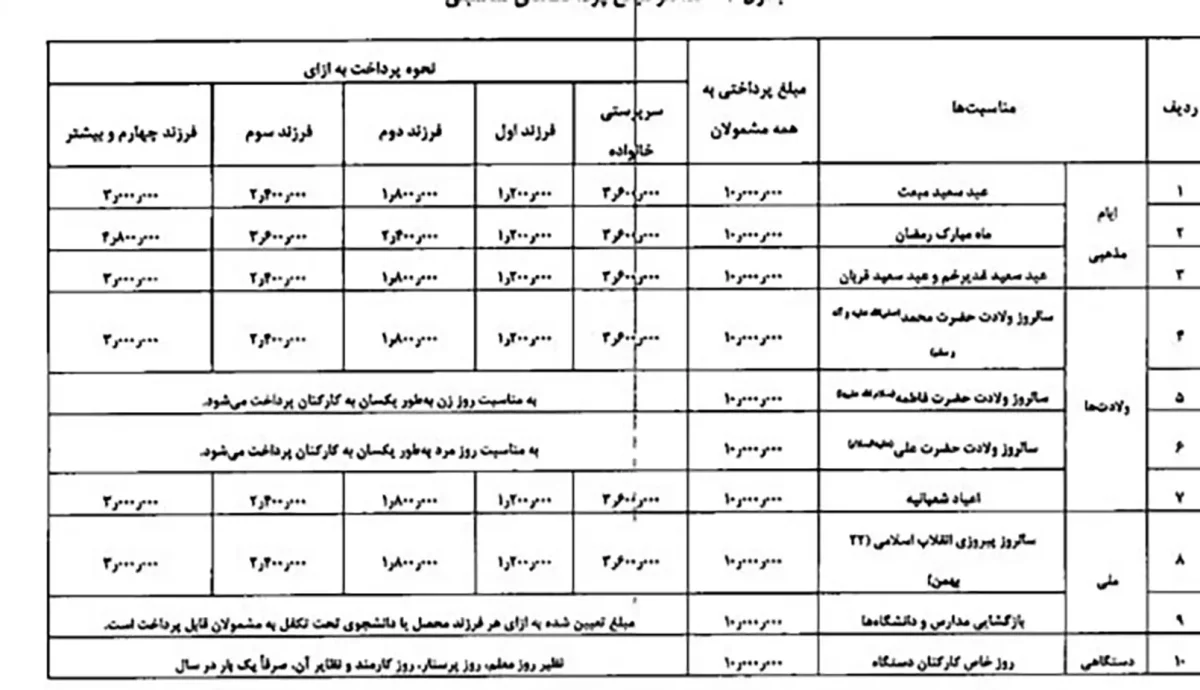 نحوه پرداخت به ازای
ردیف مناسبت‌ها مبلغ پرداختی به همه مشمولان سرپرستی خانواده فرزند اول فرزند دوم فرزند سوم فرزند چهارم و بیشتر
ایام مذهبی
۱ عید سعید مبعث ۱۰٫۰۰۰٫۰۰۰ ۳٫۶۰۰٫۰۰۰ ۱٫۲۰۰٫۰۰۰ ۱٫۸۰۰٫۰۰۰ ۲٫۴۰۰٫۰۰۰ ۳٫۰۰۰٫۰۰۰
۲ ماه مبارک رمضان ۱۰٫۰۰۰٫۰۰۰ ۳٫۶۰۰٫۰۰۰ ۱٫۲۰۰٫۰۰۰ ۲٫۴۰۰٫۰۰۰ ۳٫۶۰۰٫۰۰۰ ۴٫۸۰۰٫۰۰۰
۳ عید سعید غدیرخم و عید سعید قربان ۱۰٫۰۰۰٫۰۰۰ ۳٫۶۰۰٫۰۰۰ ۱٫۲۰۰٫۰۰۰ ۱٫۸۰۰٫۰۰۰ ۲٫۴۰۰٫۰۰۰ ۳٫۰۰۰٫۰۰۰
ولادت‌ها
۴ سالروز ولادت حضرت محمد (صلی‌الله علیه و آله و سلم) ۱۰٫۰۰۰٫۰۰۰ ۳٫۶۰۰٫۰۰۰ ۱٫۲۰۰٫۰۰۰ ۱٫۸۰۰٫۰۰۰ ۲٫۴۰۰٫۰۰۰ ۳٫۰۰۰٫۰۰۰
۵ سالروز ولادت حضرت فاطمه (سلام‌الله علیها) ۱۰٫۰۰۰٫۰۰۰ به مناسبت روز زن به‌طور یکسان به کارکنان پرداخت می‌شود.
۶ سالروز ولادت حضرت علی (علیه‌السلام) ۱۰٫۰۰۰٫۰۰۰ به مناسبت روز مرد به‌طور یکسان به کارکنان پرداخت می‌شود.
۷ اعیاد شعبانیه ۱۰٫۰۰۰٫۰۰۰ ۳٫۶۰۰٫۰۰۰ ۱٫۲۰۰٫۰۰۰ ۱٫۸۰۰٫۰۰۰ ۲٫۴۰۰٫۰۰۰ ۳٫۰۰۰٫۰۰۰
ملی
۸ سالروز پیروزی انقلاب اسلامی (۲۲ بهمن) ۱۰٫۰۰۰٫۰۰۰ ۳٫۶۰۰٫۰۰۰ ۱٫۲۰۰٫۰۰۰ ۱٫۸۰۰٫۰۰۰ ۲٫۴۰۰٫۰۰۰ ۳٫۰۰۰٫۰۰۰
۹ بازگشایی مدارس و دانشگاه‌ها ۱۰٫۰۰۰٫۰۰۰ مبلغ تعیین شده به ازای هر فرزند محصل یا دانشجوی تحت تکفل به مشمولان قابل پرداخت است.
۱۰ دستگاهی روز خاص کارکنان دستگاه ۱۰٫۰۰۰٫۰۰۰ نظیر روز معلم، روز پرستار، روز کارمند و نظایر آن، صرفاً یک بار در سال